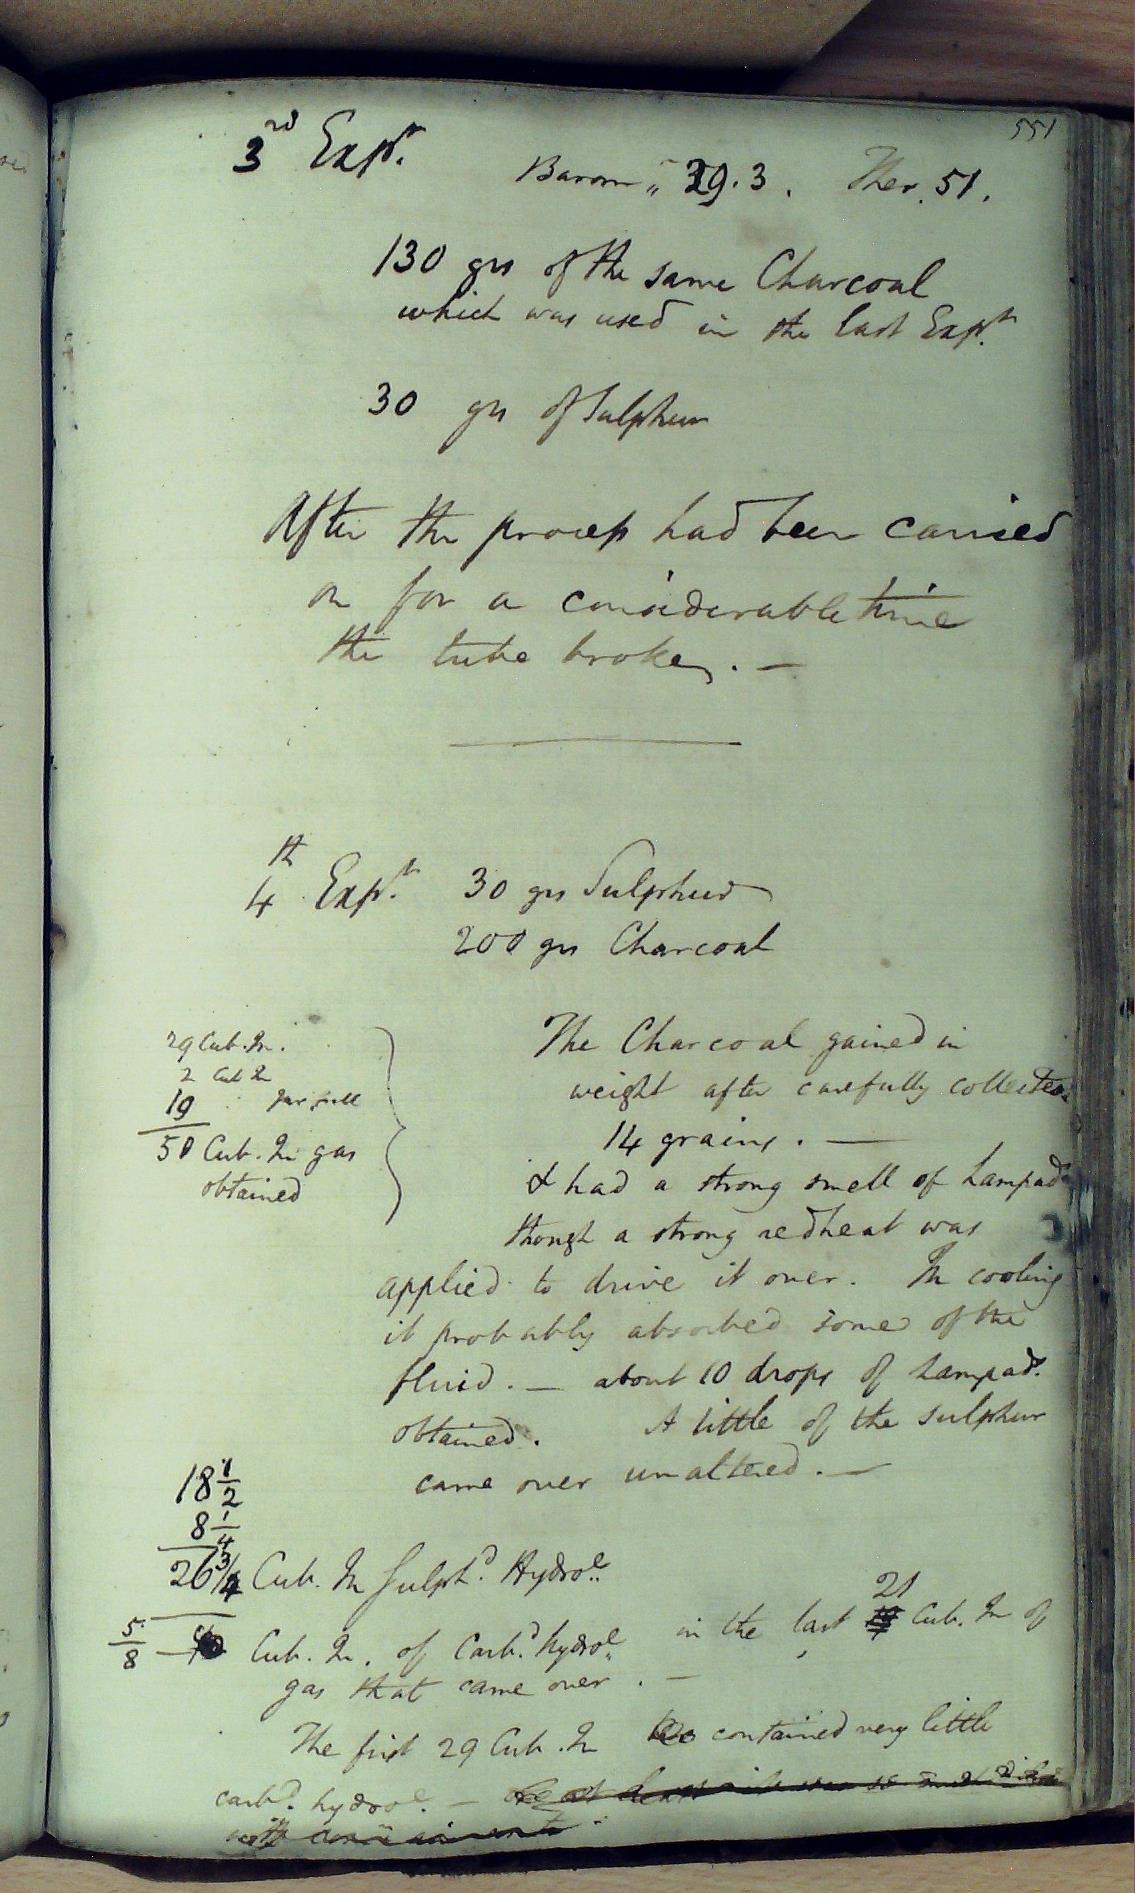 551
3rd Expt.
Barom,, 29.3. Ther. 51.
130 grs of the same Charcoal
which was used in the last Expt.
30 grs of Sulphur
After the process had been carried
on for a considerable time
the tube broke. —
4th Expt. 30 grs Sulphur
200 grs Charcoal
29 Cub. In.
2 Cub In
19 Jar full
50 Cub. In gas
obtained
The Charcoal gained in
weight after carefully collected
14 grains. —
& had a strong smell of Lampads
though a strong red heat was
applied to drive it over. In cooling
it probably absorbed some of the
fluid. — about 10 drops of Lampads.
obtained. A little of the sulphur
came over unaltered. —
18 1/2
8 1/4
26 3/4 Cub. In Sulphd. Hydrol..
5/8 — Cub. In. of Carbd. hydrol.. in the last 21 Cub. In of
gas that came over. —
The first 29 Cub. In contained very little
carbd. hydrol. —